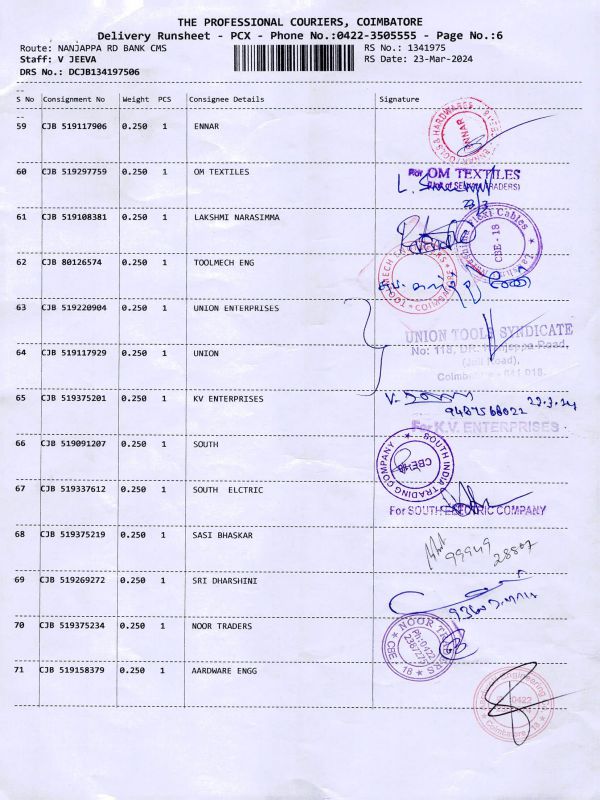 THE PROFESSIONAL COURIERS, COIMBATORE
Delivery Runsheet - PCX - Phone No.:0422-3505555 - Page No.:6
Route: NANJAPPA RD BANK CMS
RS No.: 1341975
Staff: V JEEVA
RS Date: 23-Mar-2024
DRS No.: DCJB134197506
S No Consignment No Weight PCS Consignee Details Signature
59 CJB 519117906 0.250 1 ENNAR
60 CJB 519297759 0.250 1 OM TEXTILES
For OM TEXTILES
61 CJB 519108381 0.250 1 LAKSHMI NARASIMMA
CBE - 18
62 CJB 80126574 0.250 1 TOOLMECH ENG
63 CJB 519220904 0.250 1 UNION ENTERPRISES
UNION TOOLS SYNDICATE
64 CJB 519117929 0.250 1 UNION
65 CJB 519375201 0.250 1 KV ENTERPRISES
9487568022 23.3.24
For K.V. ENTERPRISES
66 CJB 519091207 0.250 1 SOUTH
SOUTH INDIA TRADING COMPANY
67 CJB 519337612 0.250 1 SOUTH ELCTRIC
For SOUTH ELECTRIC COMPANY
68 CJB 519375219 0.250 1 SASI BHASKAR
99949
28807
69 CJB 519269272 0.250 1 SRI DHARSHINI
70 CJB 519375234 0.250 1 NOOR TRADERS
NOOR TRADERS
CBE - 18
71 CJB 519158379 0.250 1 AARDWARE ENGG